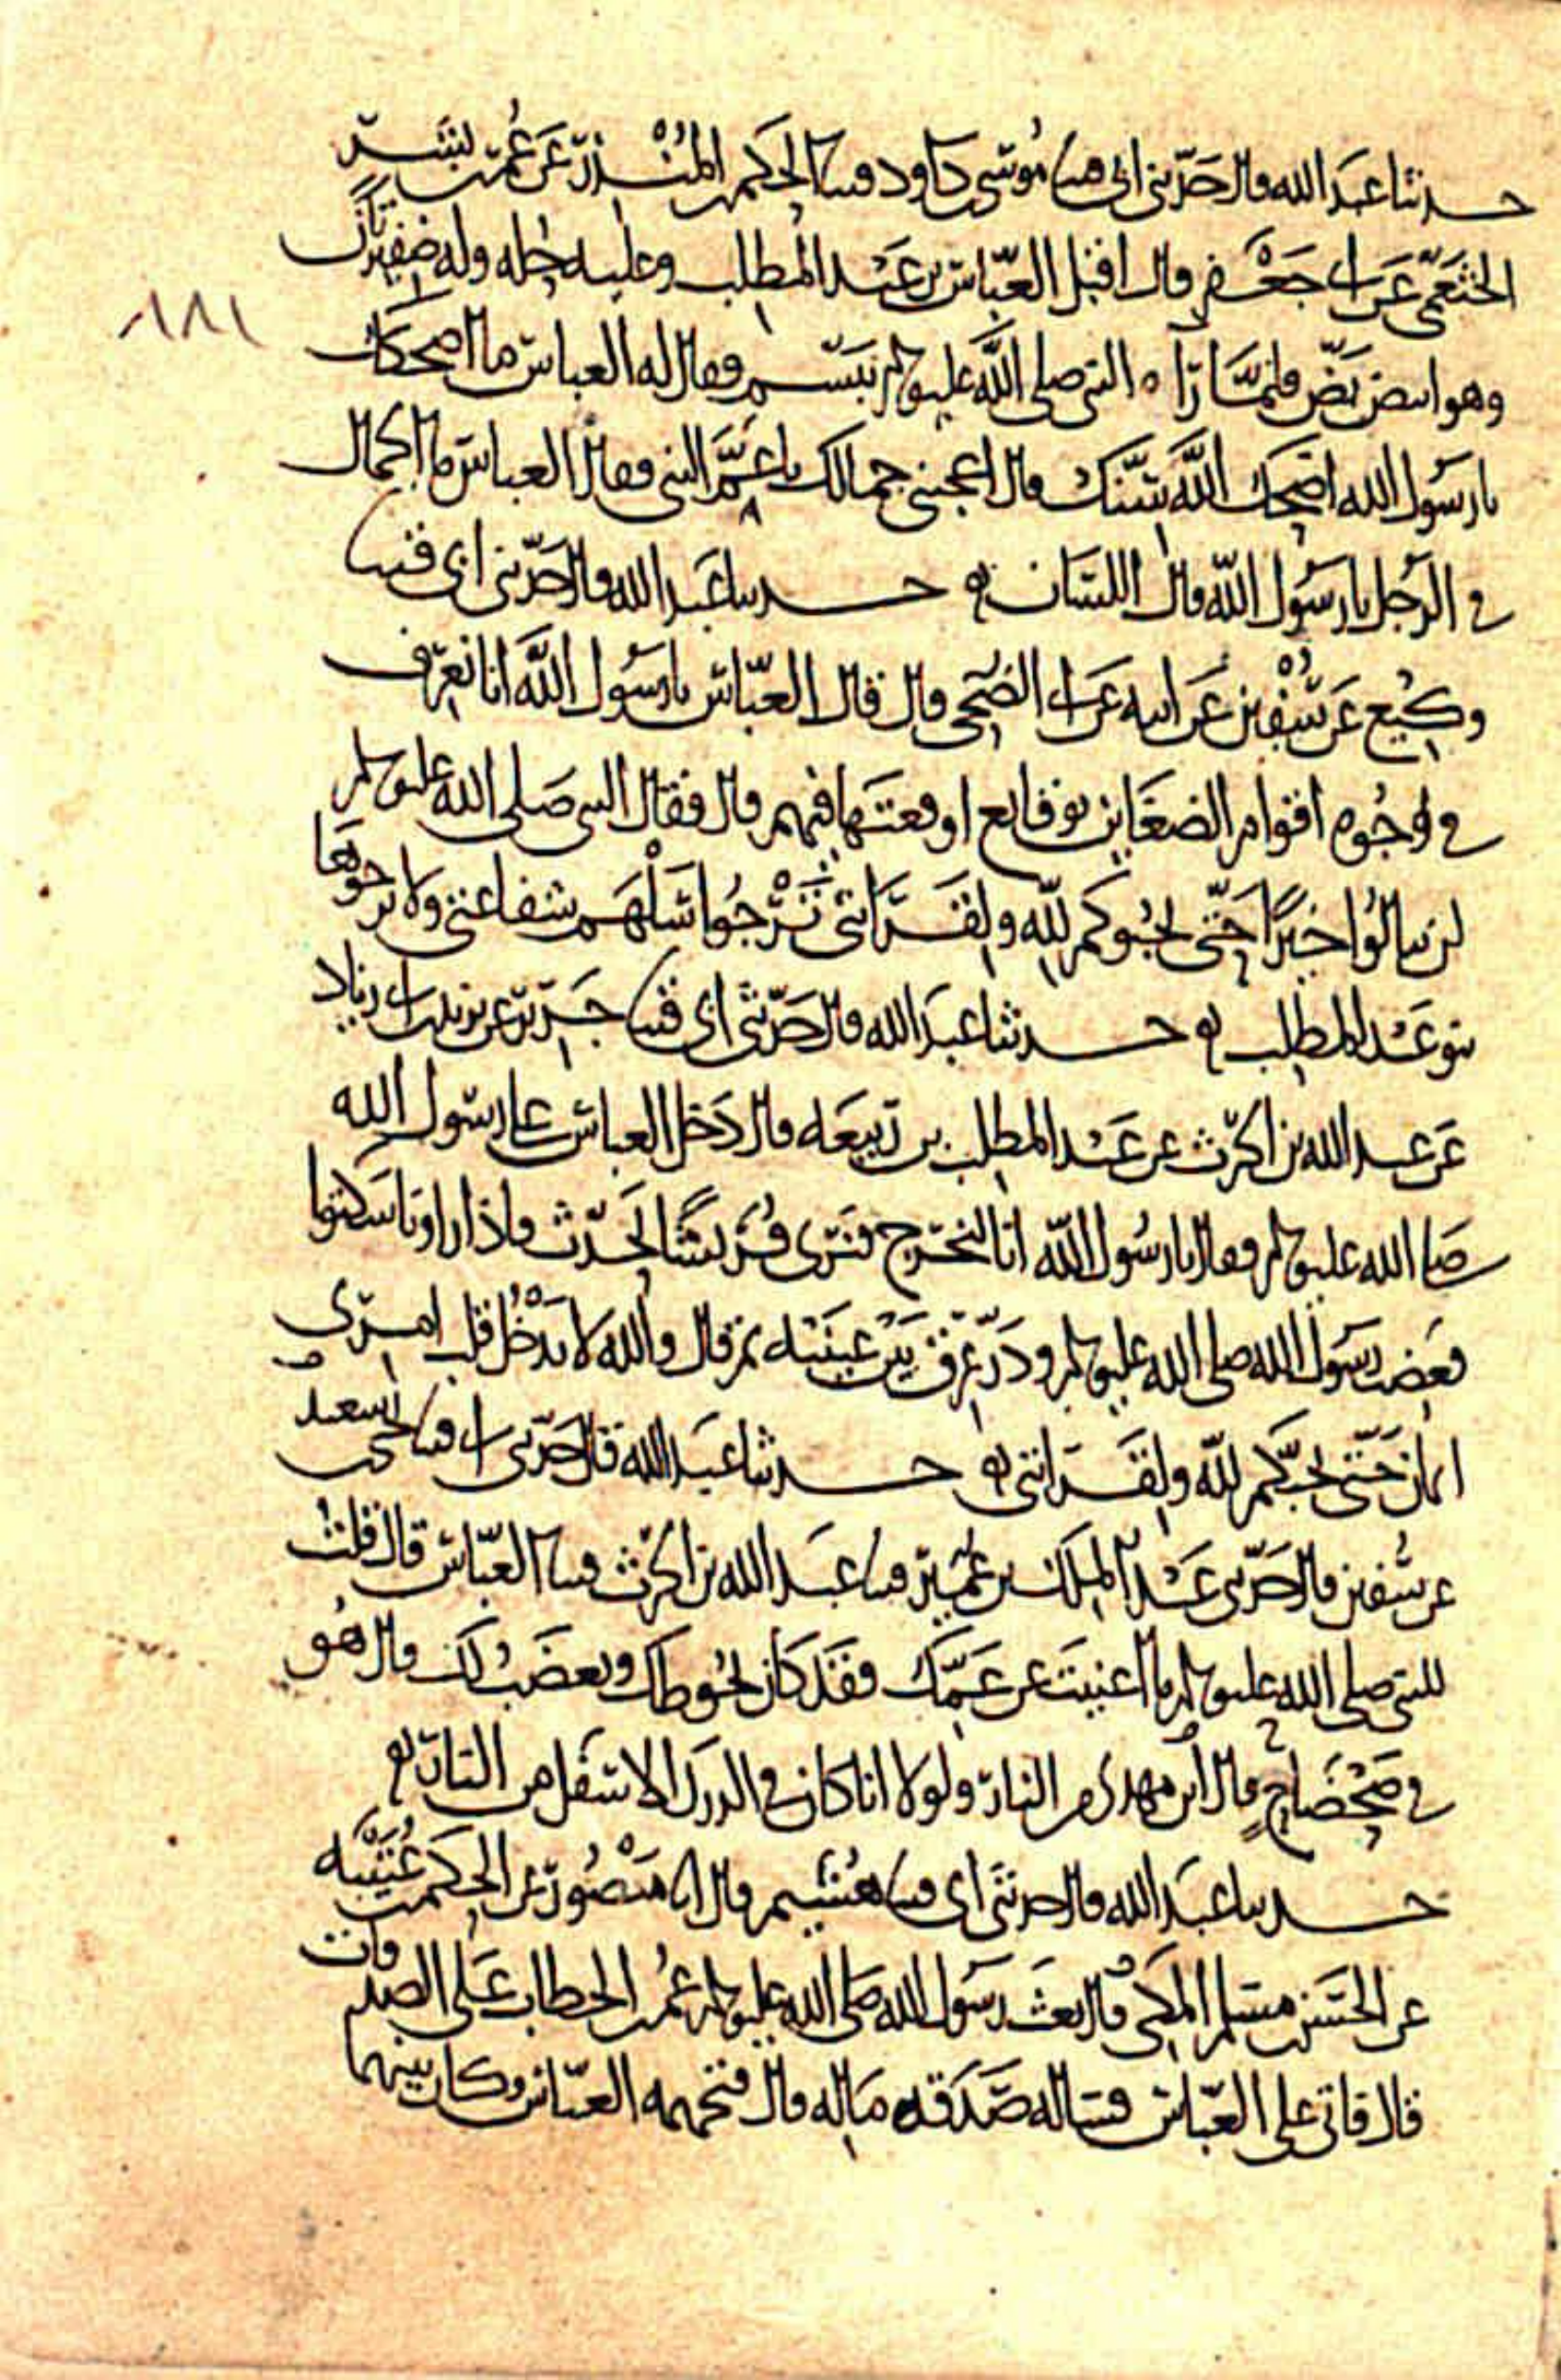 حدثنا عبد الله قال حدثني ابي قثنا موسى بن داود قثنا الحكم بن المنذر عن عمر بن بشر
الخثعمي عن ابي جعفر قال اقبل العباس بن عبد المطلب وعليه حله وله ضفيرتان
وهو ابيض بض فلما راه النبي صلى الله عليه وسلم تبسم فقال له العباس ما اضحكك
يا رسول الله اضحك الله سنك قال اعجبني جمالك يا عم النبي فقال العباس ما الجمال
في الرجل يا رسول الله قال اللسان حدثنا عبد الله قال حدثني ابي قثنا
وكيع عن سفين عن ابيه عن ابي الضحى قال قال العباس يا رسول الله انا نعرف
في وجوه اقوام الضغاين بوقايع اوقعتها فيهم قال فقال النبي صلى الله عليه وسلم
لن ينالوا خيرا حتى يحبوكم لله ولقرابتي ترجوا سلهم شفاعتي ولا يرجوها
بنو عبد المطلب حدثنا عبد الله قال حدثني ابي قثنا جرير عن يزيد بن ابي زياد
عن عبد الله بن الحرث عن عبد المطلب بن ربيعه قال دخل العباس على رسول الله
صلى الله عليه وسلم فقال يا رسول الله انا لنخرج فنرى قريشا تحدث فاذا راونا سكتوا
فغضب رسول الله صلى الله عليه وسلم ودر عرق بين عينيه ثم قال والله لا يدخل قلب امرى
ايمان حتى يحبكم لله ولقرابتي حدثنا عبد الله قال حدثني ابي قثنا يحيى بن سعيد
عن سفين قال حدثني عبد الملك بن عمير قثنا عبد الله بن الحرث قثنا العباس قال قلت
للنبي صلى الله عليه وسلم ما اغنيت عن عمك فقد كان يحوطك ويغضب لك قال هو
في ضحضاح قال ابن مهدي من النار ولولا انا كان في الدرك الاسفل من النار
حدثنا عبد الله قال حدثني ابي قثنا هشيم قال انا منصور عن الحكم بن عتيبه
عن الحسن بن مسلم المكي قال بعث رسول الله صلى الله عليه وسلم عمر بن الخطاب على الصدقات
قال فاتى على العباس فساله صدقه ماله قال فتجهمه العباس وكان بينهما
١٨١